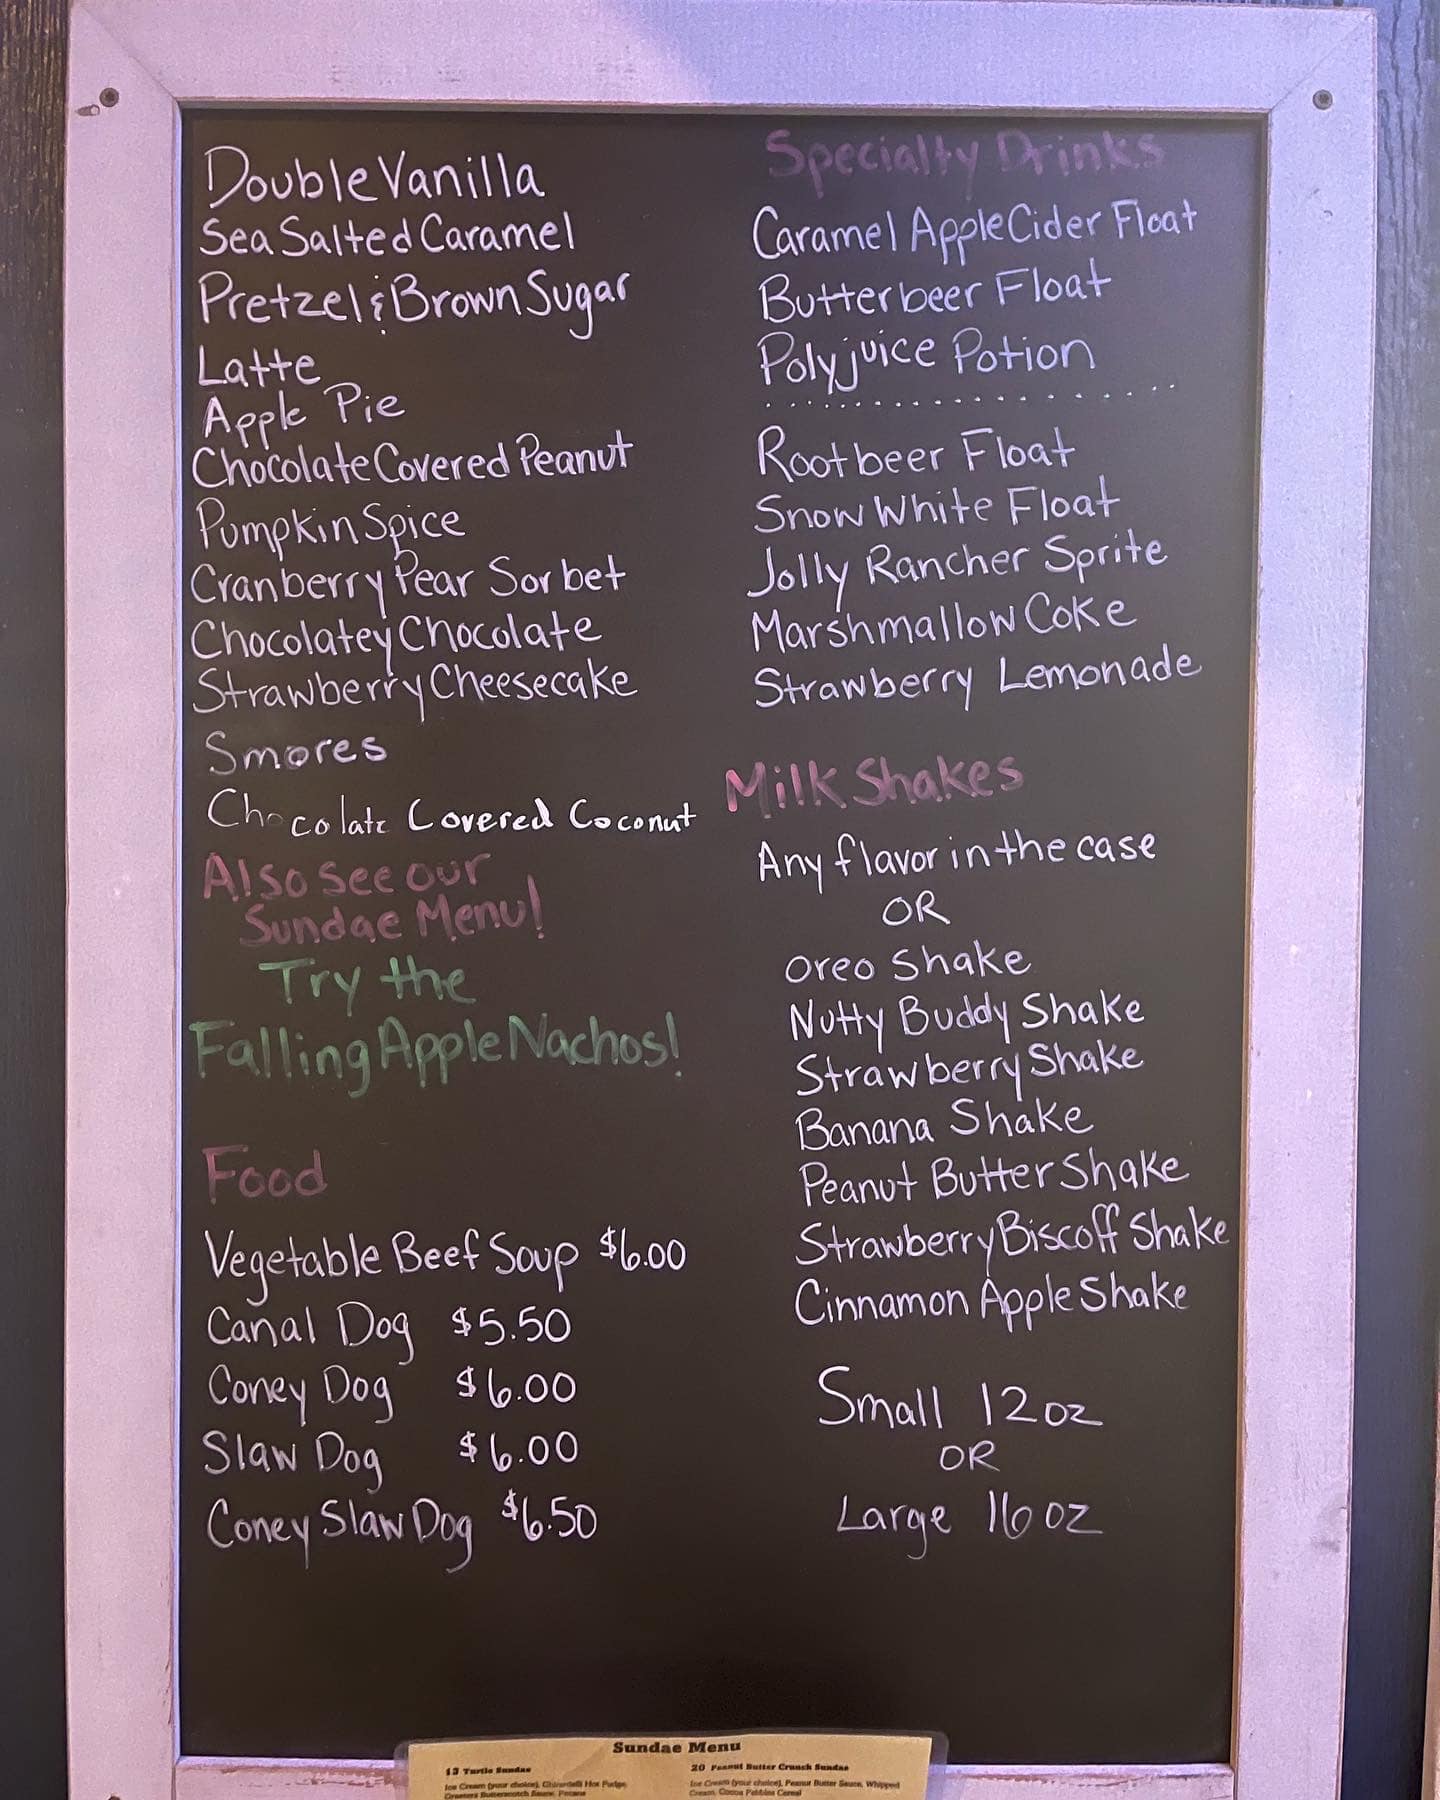 Double Vanilla
Sea Salted Caramel
Pretzel & Brown Sugar
Latte
Apple Pie
Chocolate Covered Peanut
Pumpkin Spice
Cranberry Pear Sorbet
Chocolatey Chocolate
Strawberry Cheesecake
Smores
Chocolate Covered Coconut
Also see our
Sundae Menu!
Try the
Falling Apple Nachos!
Food
Vegetable Beef Soup $6.00
Canal Dog $5.50
Coney Dog $6.00
Slaw Dog $6.00
Coney Slaw Dog $6.50
Specialty Drinks
Caramel Apple Cider Float
Butterbeer Float
Polyjuice Potion
Rootbeer Float
Snow White Float
Jolly Rancher Sprite
Marshmallow Coke
Strawberry Lemonade
Milk Shakes
Any flavor in the case
OR
Oreo Shake
Nutty Buddy Shake
Strawberry Shake
Banana Shake
Peanut Butter Shake
Strawberry Biscoff Shake
Cinnamon Apple Shake
Small 12oz
OR
Large 16oz
Sundae Menu
Turtle Sundae
Ice Cream (your choice), Ghirardelli Hot Fudge,
Butterscotch Sauce, Pecans
20 Peanut Butter Crunch Sundae
Ice Cream (your choice), Peanut Butter Sauce, Whipped
Cream, Cocoa Pebbles Cereal